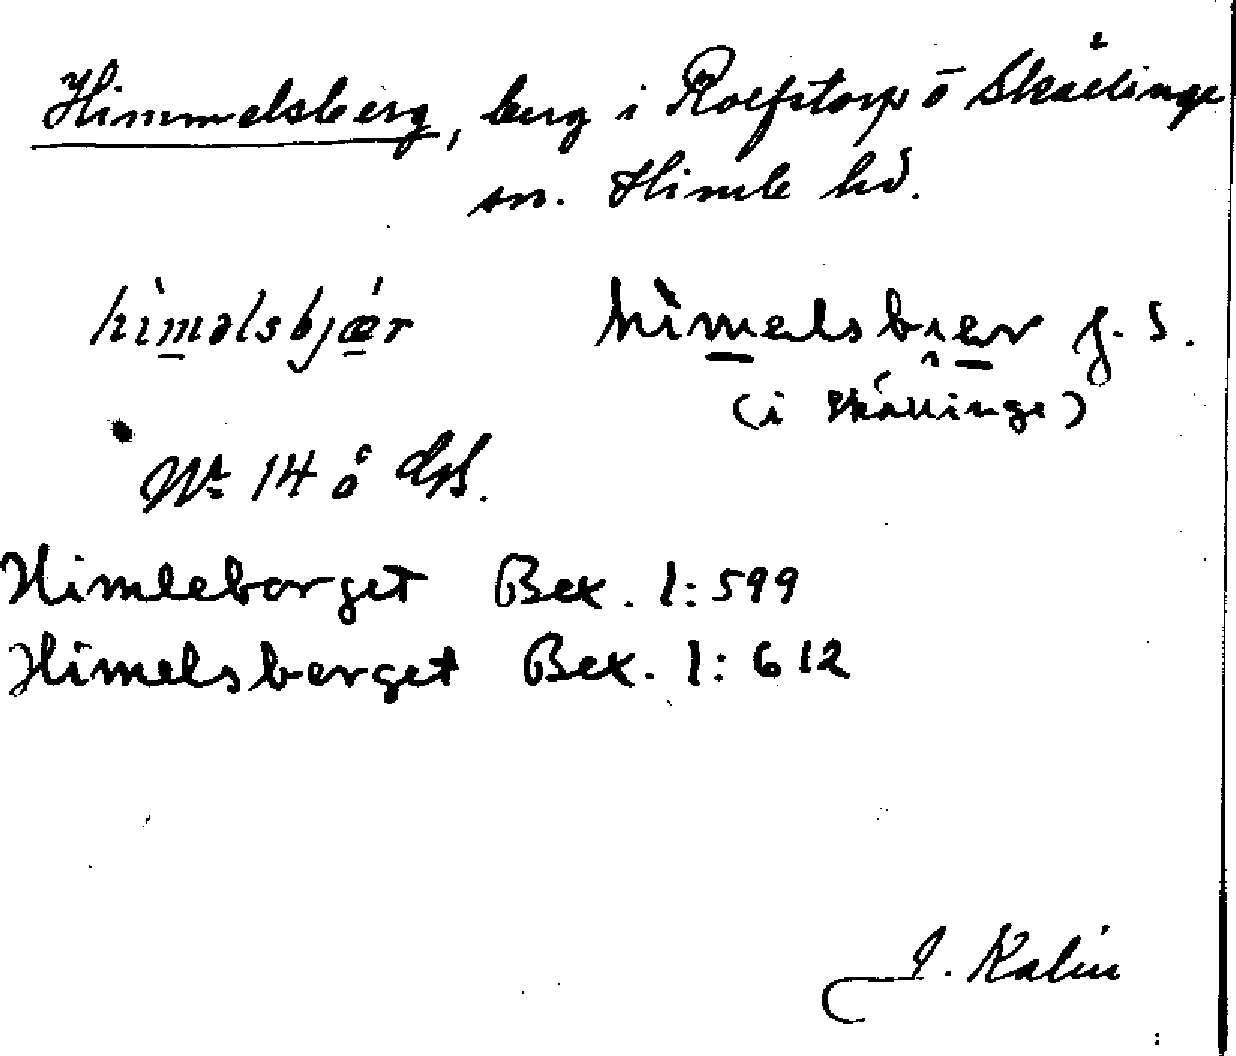 Himmelsberg, berg i Rolfstorp o Skällinge
sn. Himle hd.
himəlsbjær himəlsbi̯ær J. S.
(i Skällinge)
Nr 14 å Gs.
Himleberget Bex. 1:599
Himelsberget Bex. 1:612
J. Kalin